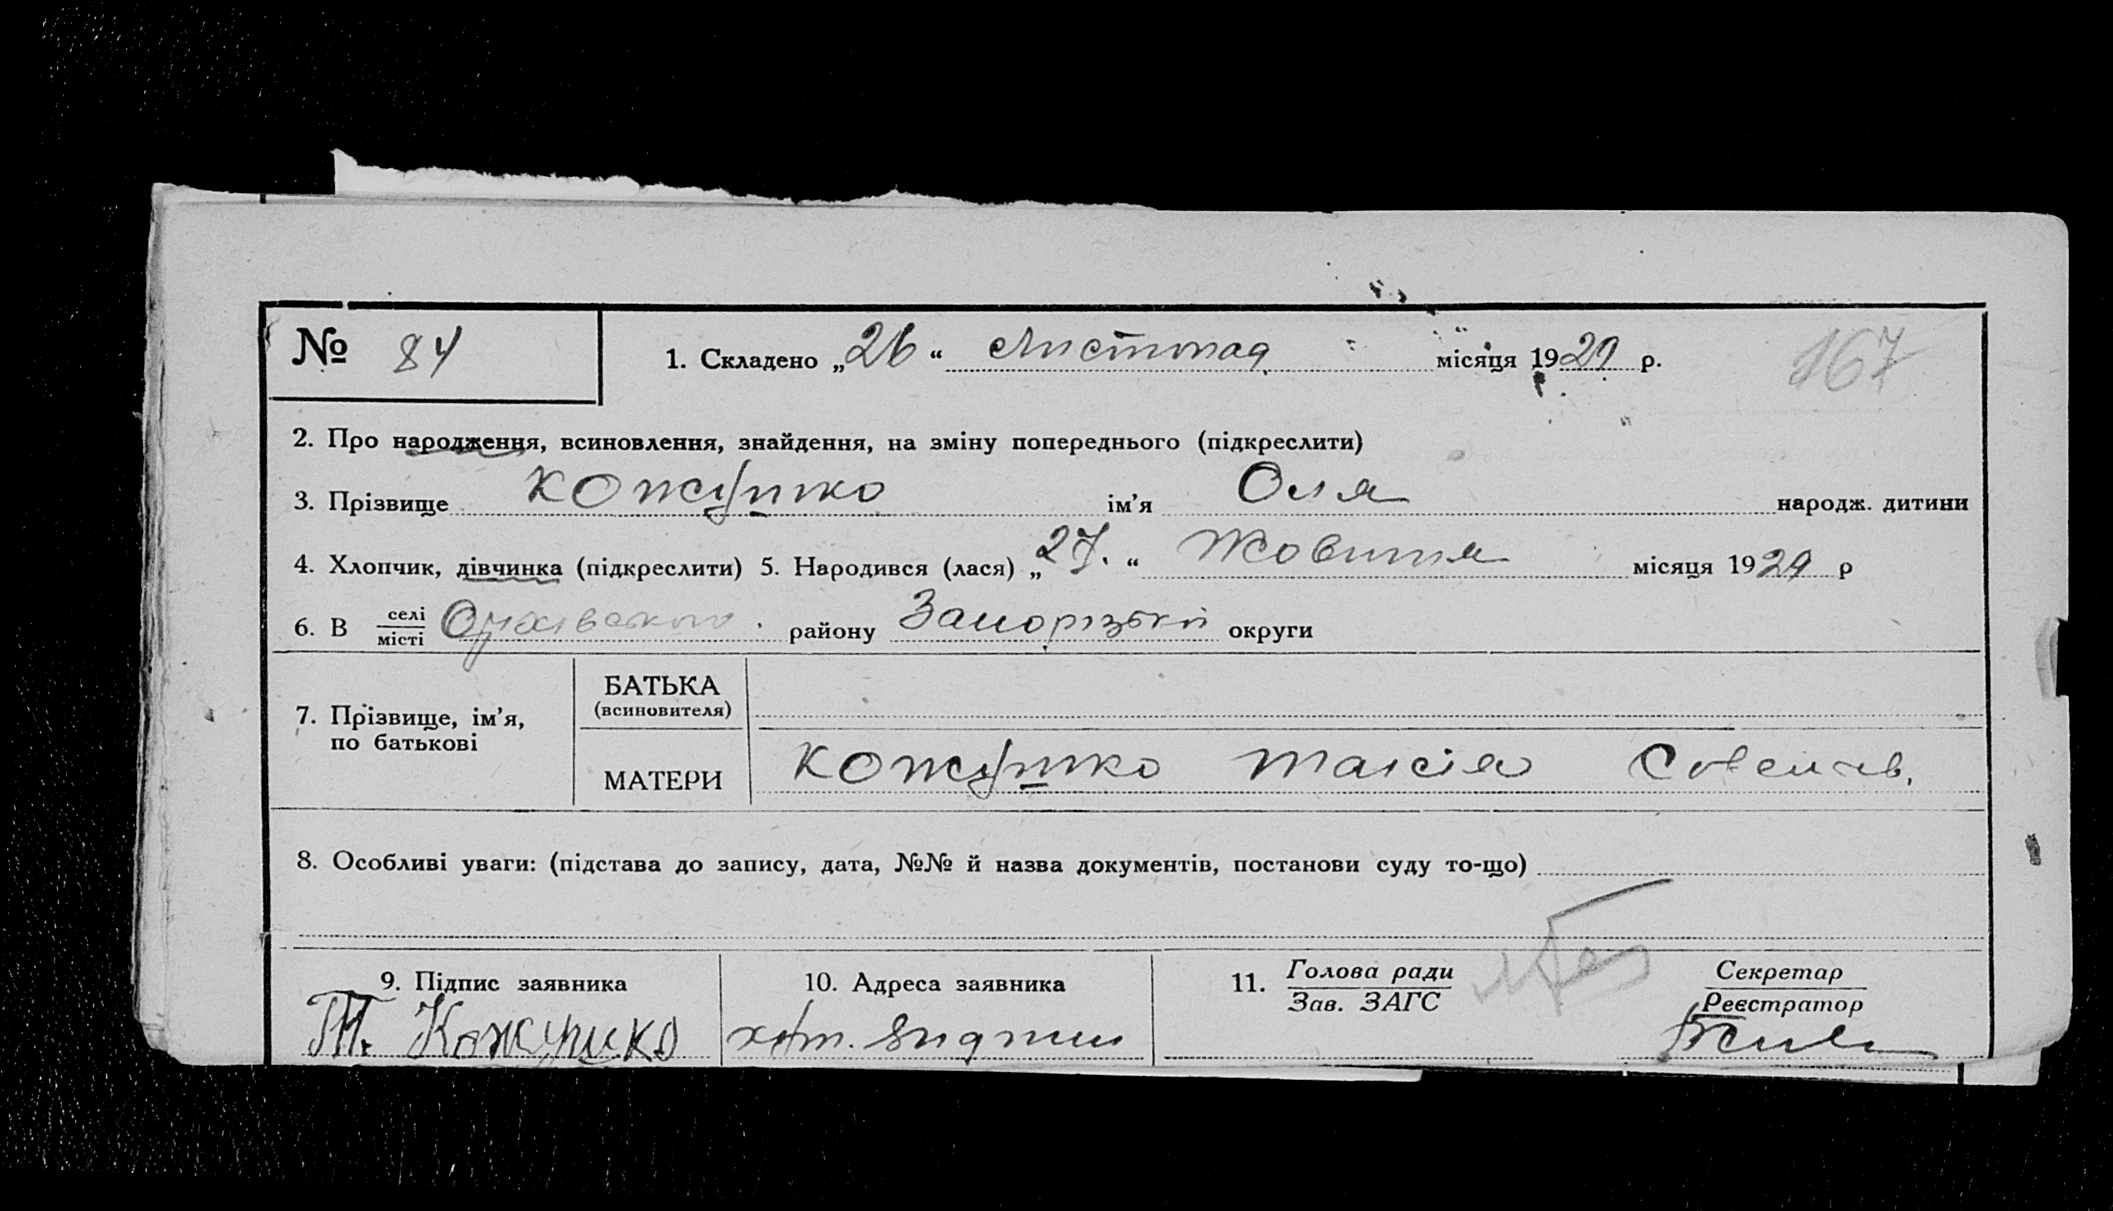 № 84 1. Складено „26“ Листопад місяця 1929 р. 167
2. Про народження, всиновлення, знайдення, на зміну попереднього (підкреслити)
3. Прізвище Кожушко ім'я Оля народж. дитини
4. Хлопчик, дівчинка (підкреслити) 5. Народився (лася) „27.“ Жовтня місяця 1929 р
6. В селі місті Оріхівського району Запорізької округи
7. Прізвище, ім'я, по батькові
БАТЬКА
(всиновителя)
МАТЕРИ Кожушко Таісія
8. Особливі уваги: (підстава до запису, дата, №№ й назва документів, постанови суду то-що)
9. Підпис заявника
Т. Кожушко
10. Адреса заявника
хут.
11. Голова ради
Зав. ЗАГС
Секретар
Реєстратор